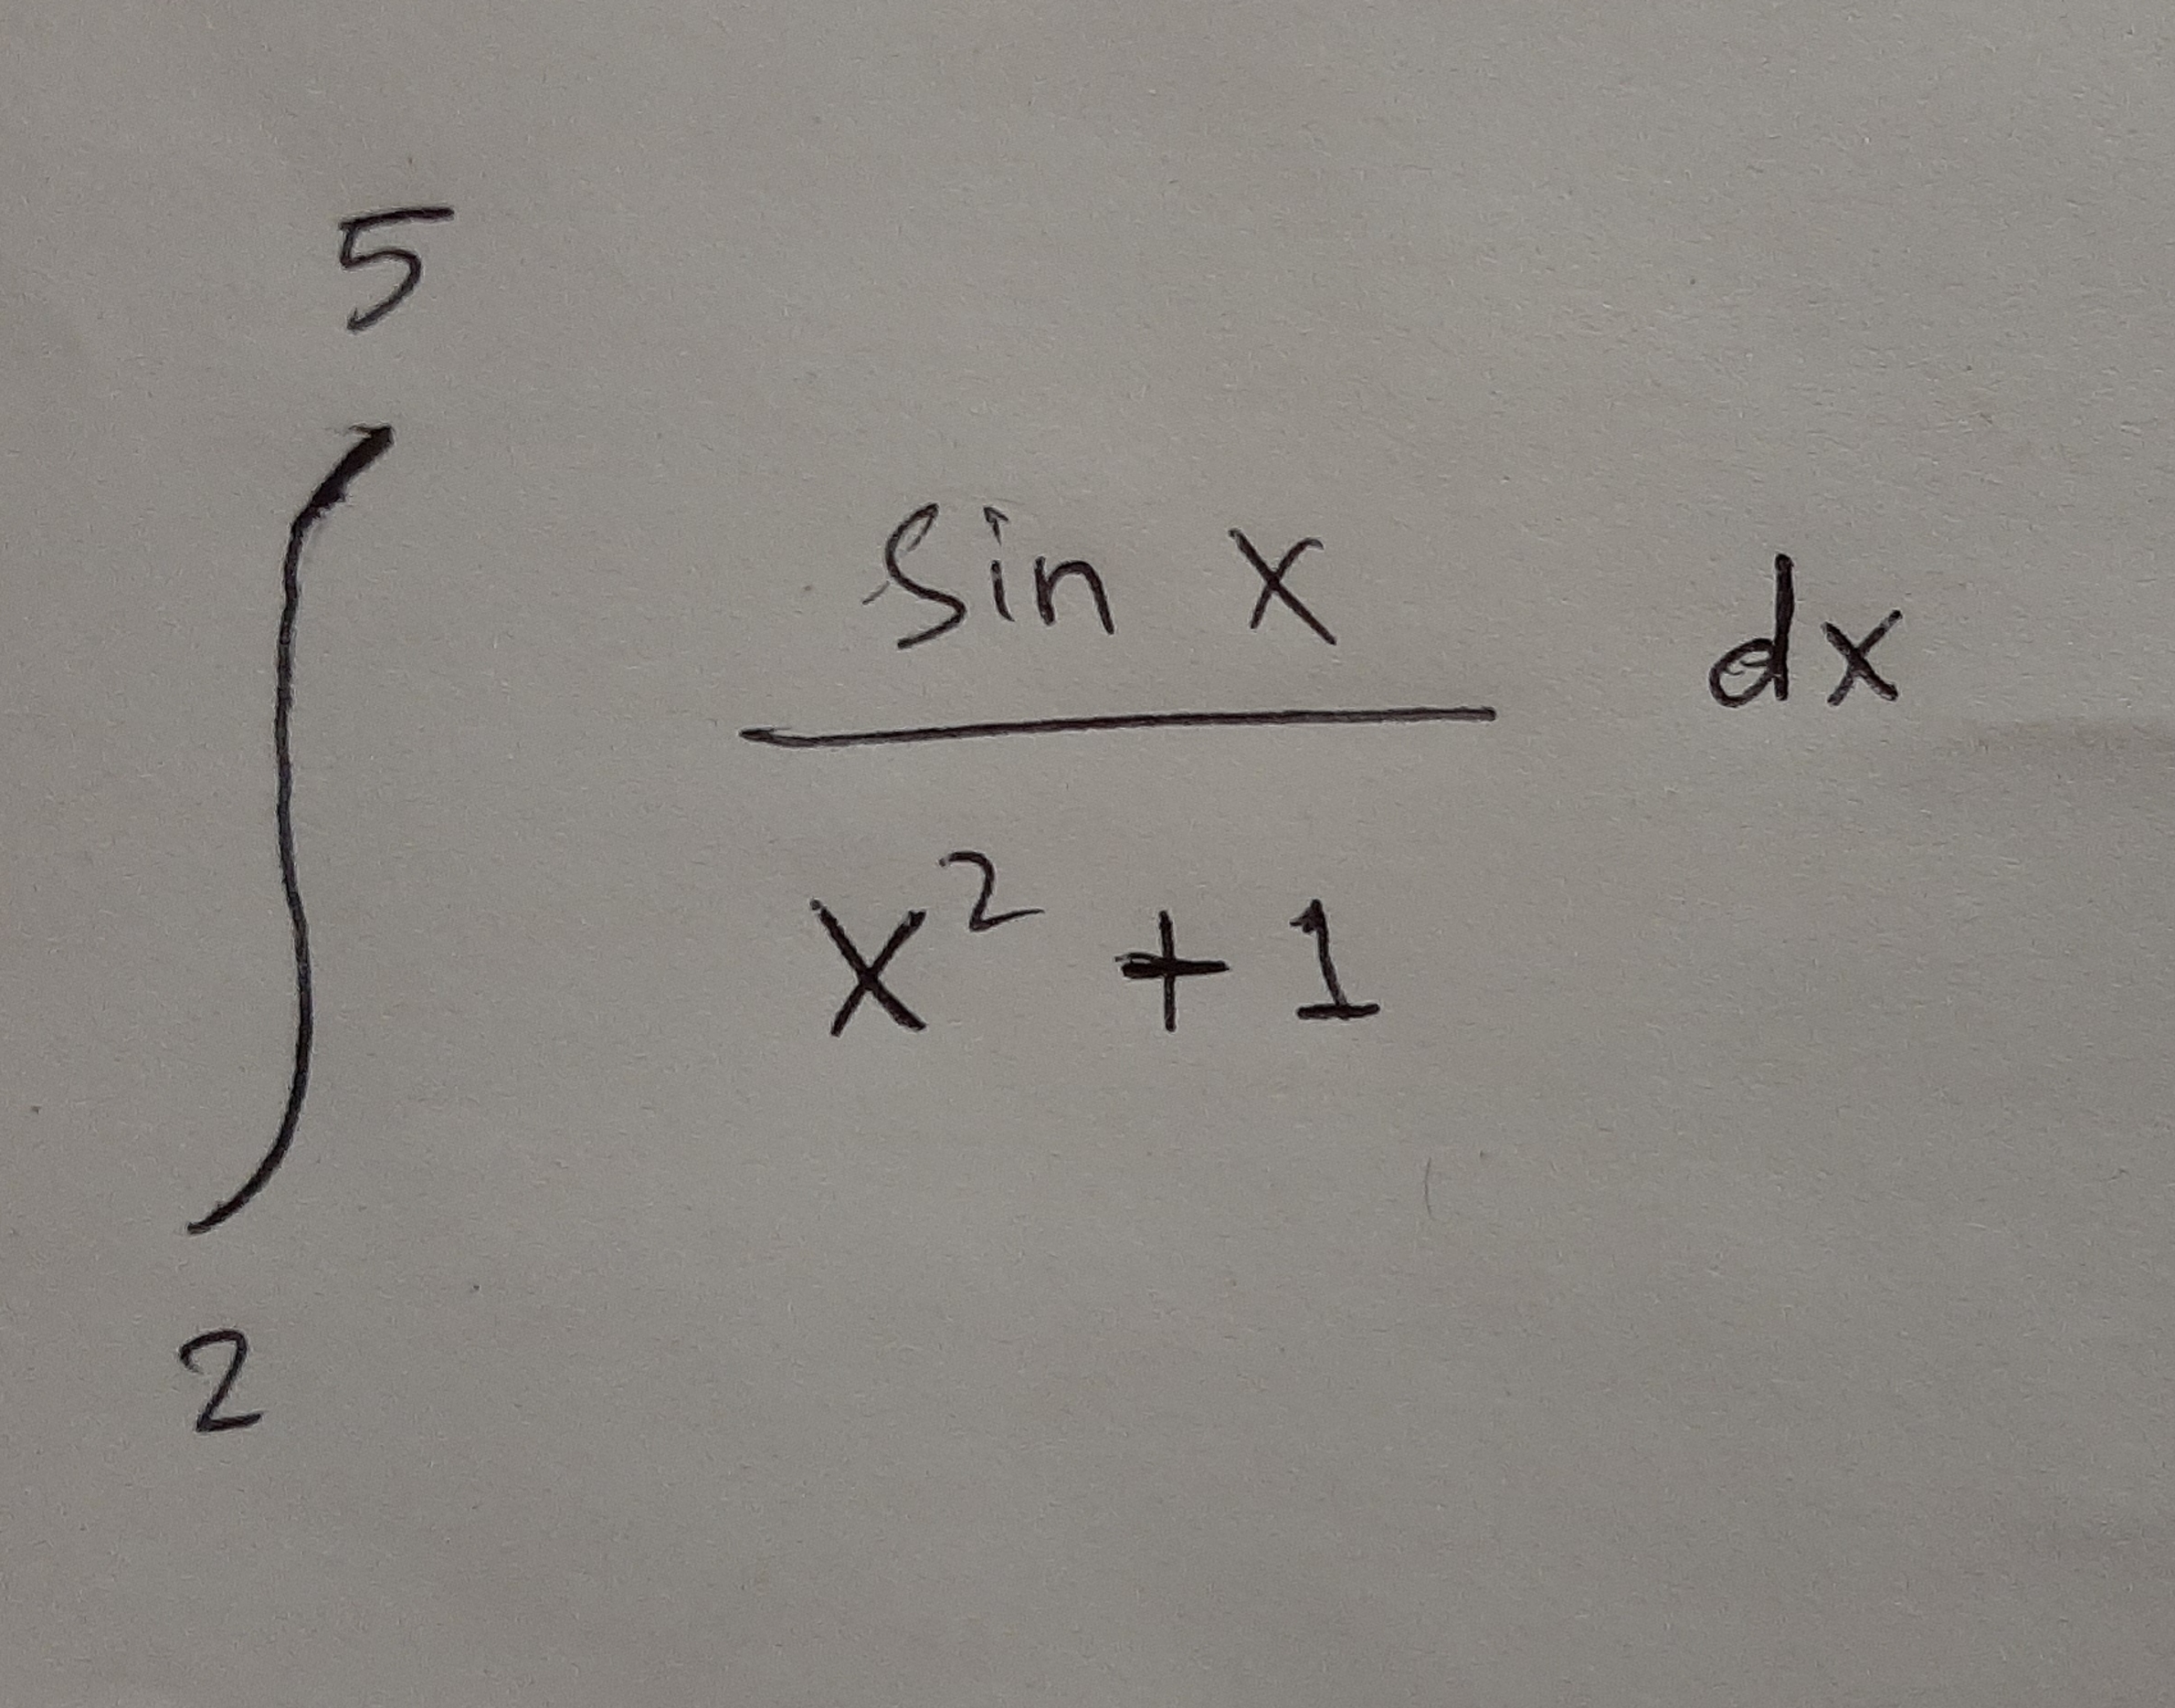 5
∫ sin x / x² + 1 dx
2